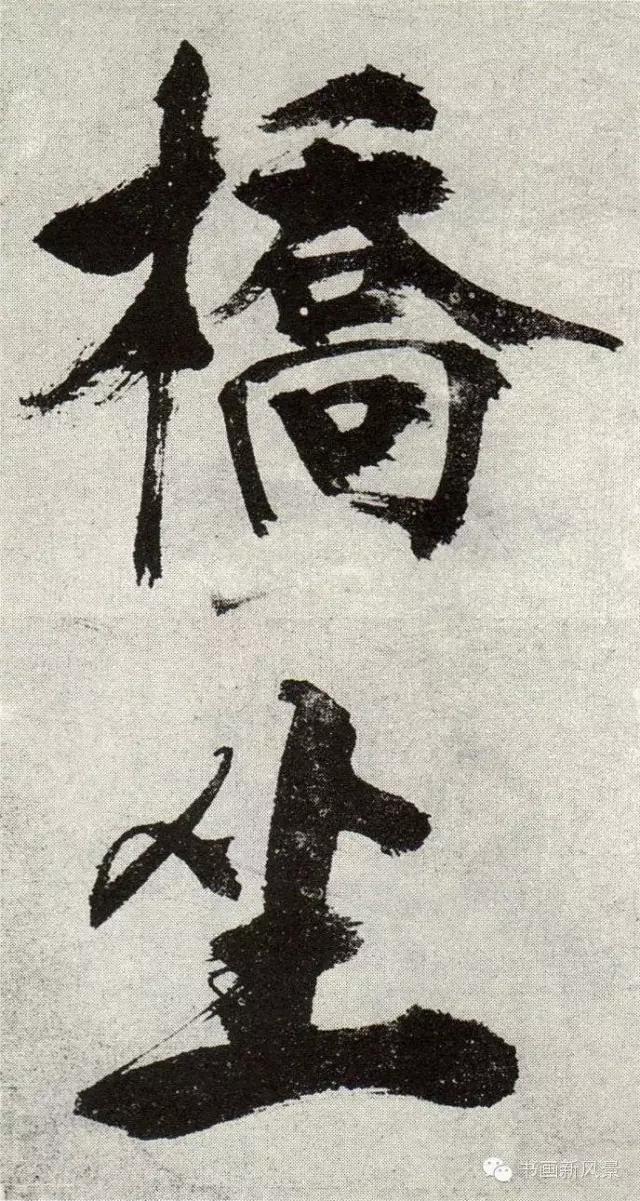 橋
坐
书画新风景